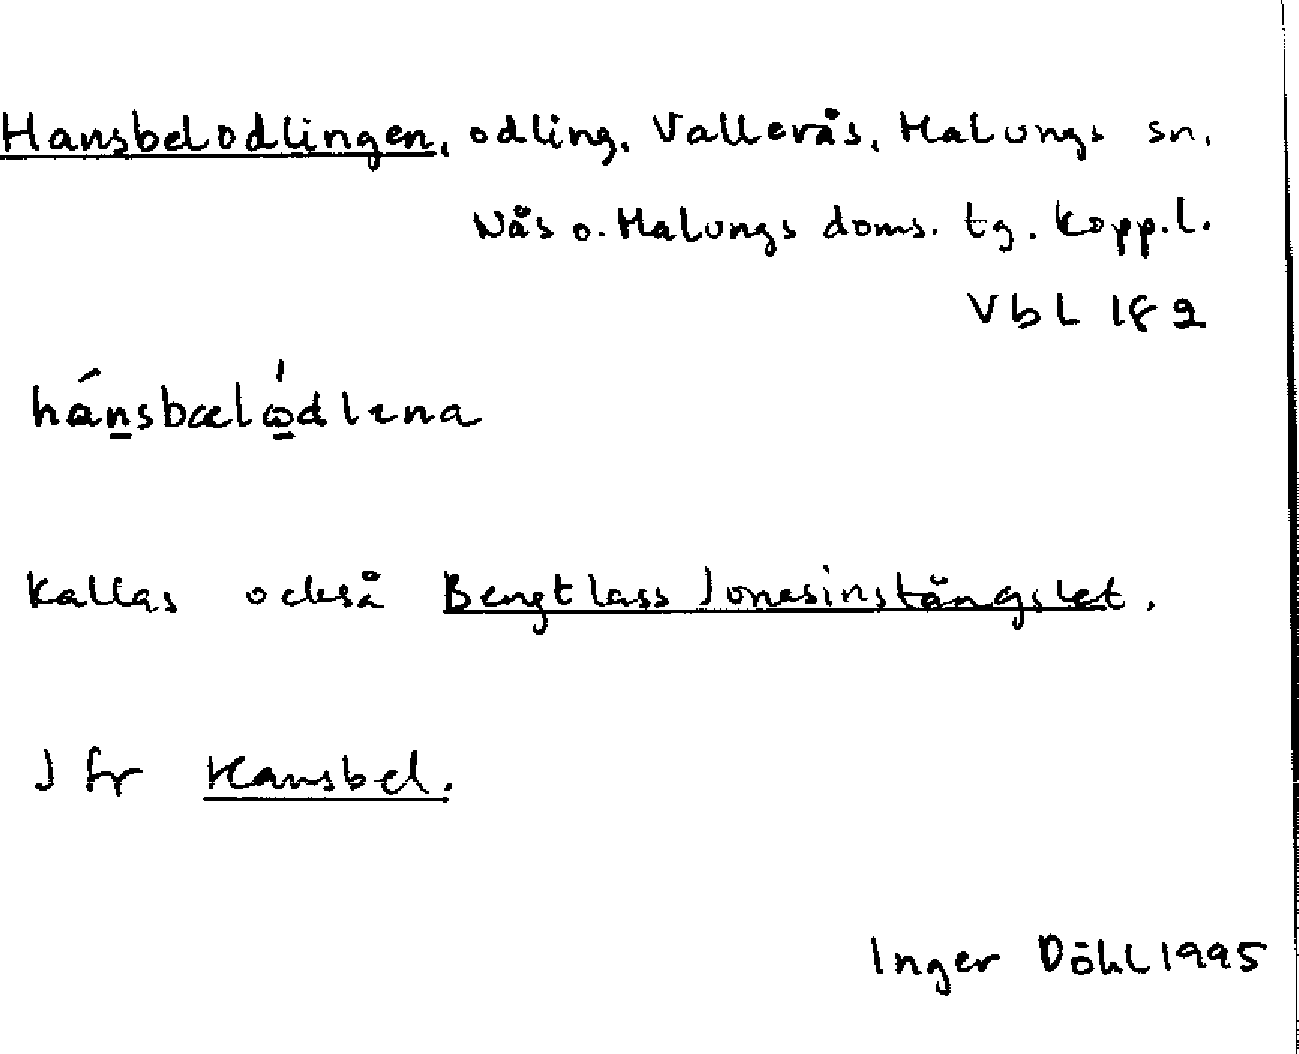 Hansbelodlingen, odling, Vallerås, Malungs sn.
Nås o. Malungs doms. tg. Kopp.l.
Vbl 1F2
hánsbælώ̲dlɩna
Kallas också Bengtlass Jonasinstängslet.
Jfr Hansbel.
Inger Döhl 1995